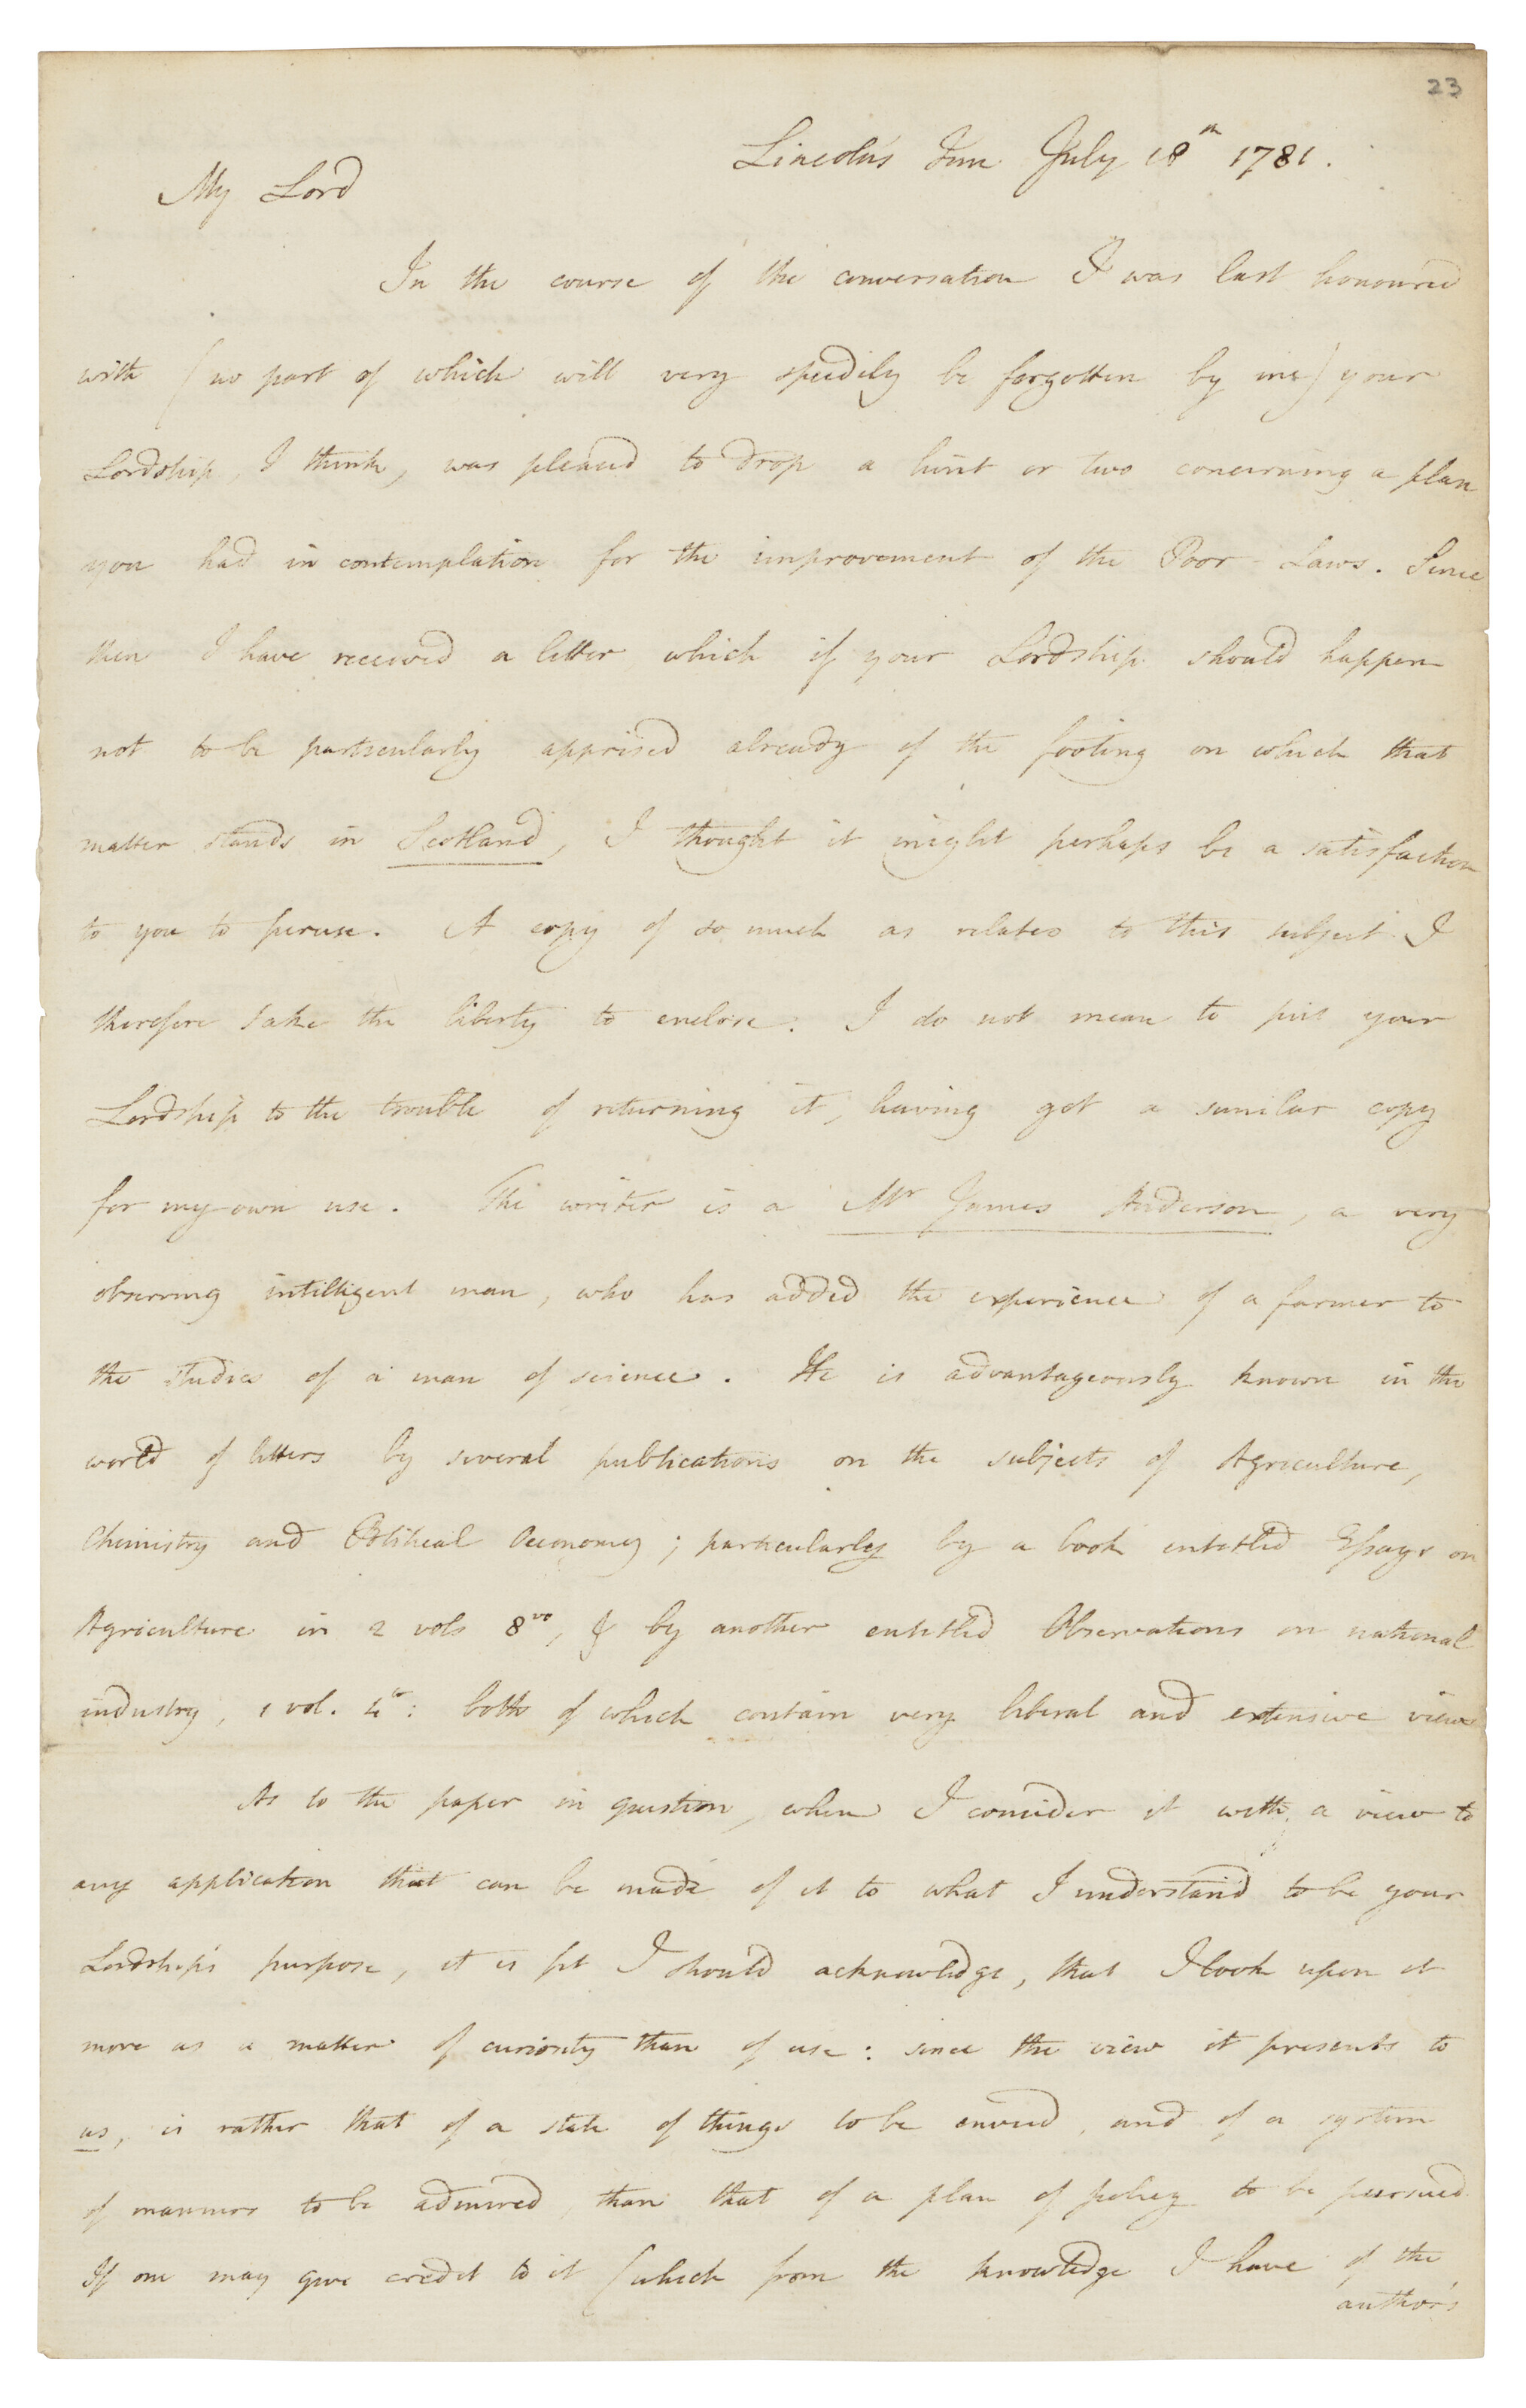 23
Lincoln's Inn July 18th 1781.
My Lord
In the course of the conversation I was last honoured
with (no part of which will very speedily be forgotten by me) your
Lordship, I think, was pleased to drop a hint or two concerning a plan
you had in contemplation for the improvement of the Poor-Laws. Since
then I have received a letter which if your Lordship should happen
not to be particularly apprised already of the footing on which that
matter stands in Scotland, I thought it might perhaps be a satisfaction
to you to peruse. A copy of so much as relates to this subject I
therefore take the liberty to enclose. I do not mean to put your
Lordship to the trouble of returning it, having got a similar copy
for my own use. The writer is a Mr James Anderson, a very
observing intelligent man, who has added the experience of a farmer to
the studies of a man of science. He is advantageously known in the
world of letters by several publications on the subjects of Agriculture,
Chemistry and Political Oeconomy; particularly by a book entitled Essays on
Agriculture in 2 vols 8vo, & by another entitled Observations on national
industry, 1 vol. 4to: both of which contain very liberal and extensive views
As to the paper in question, when I consider it with a view to
any application that can be made of it to what I understand to be your
Lordship's purpose, it is fit I should acknowledge, that I look upon it
more as a matter of curiosity than of use: since the view it presents to
us, is rather that of a state of things to be envied, and of a system
of manners to be admired, than that of a plan of policy to be pursued.
If one may give credit to it (which from the knowledge I have of the
author's